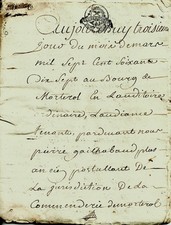 Aujourdhuy troisiem
Jour du mois de mars
mil Sept Cent Soixante
Dix Sept au Bourg de
Morterol En Lauditoire
Laudiance
tenante, pardevant nous
pierre plus
ancien postullant de
La jurisdiction De La
Commenderie demorterol